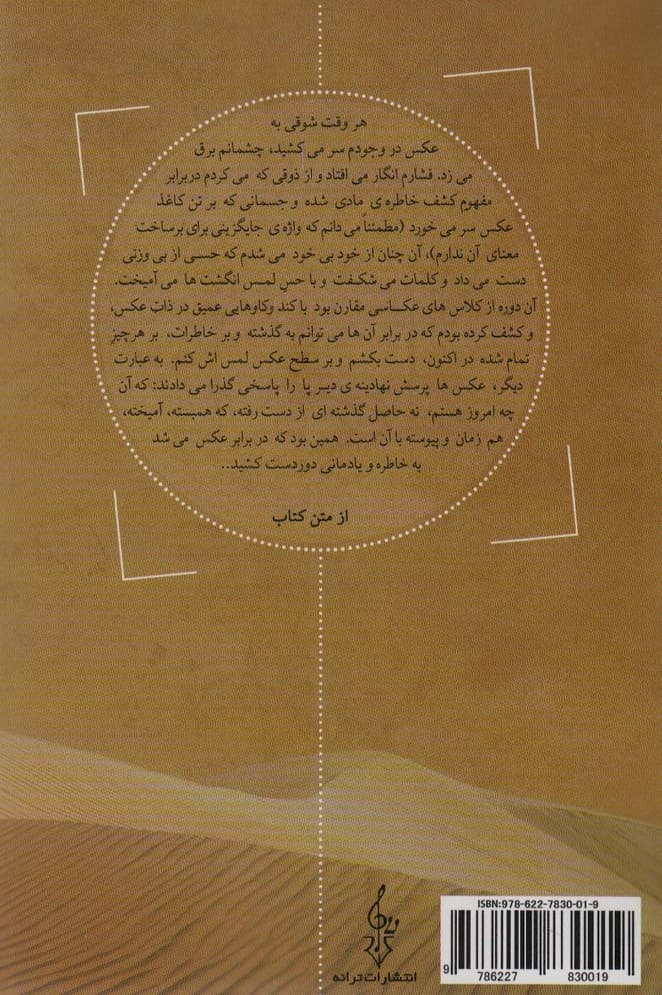 هر وقت شوقی به
عکس در وجودم سر می کشید، چشمانم برق
می زد. فشارم انگار می افتاد و از ذوقی که می کردم دربرابر
مفهومِ کشف خاطره ی مادی شده و جسمانی که بر تن کاغذ
عکس سر می خورد (مطمئناً می دانم که واژه ی جایگزینی برای برساخت
معنای آن ندارم)، آن چنان از خود بی خود می شدم که حسی از بی وزنی
دست می داد و کلمات می شکفت و با حسِ لمس انگشت ها می آمیخت.
آن دوره از کلاس های عکاسی مقارن بود با کند وکاوهایی عمیق در ذات عکس،
و کشف کرده بودم که در برابر آن ها می توانم به گذشته و بر خاطرات، بر هرچیزِ
تمام شده در اکنون، دست بکشم و بر سطح عکس لمس اش کنم. به عبارت
دیگر، عکس ها پرسش نهادینه ی دیر پا را پاسخی گذرا می دادند: که آن
چه امروز هستم، نه حاصل گذشته ای از دست رفته، که همبسته، آمیخته،
هم زمان و پیوسته با آن است. همین بود که در برابر عکس می شد
به خاطره و یادمانی دوردست کشید..
از متن کتاب
ISBN:978-622-7830-01-9
9 786227 830019
انتشارات ترانه